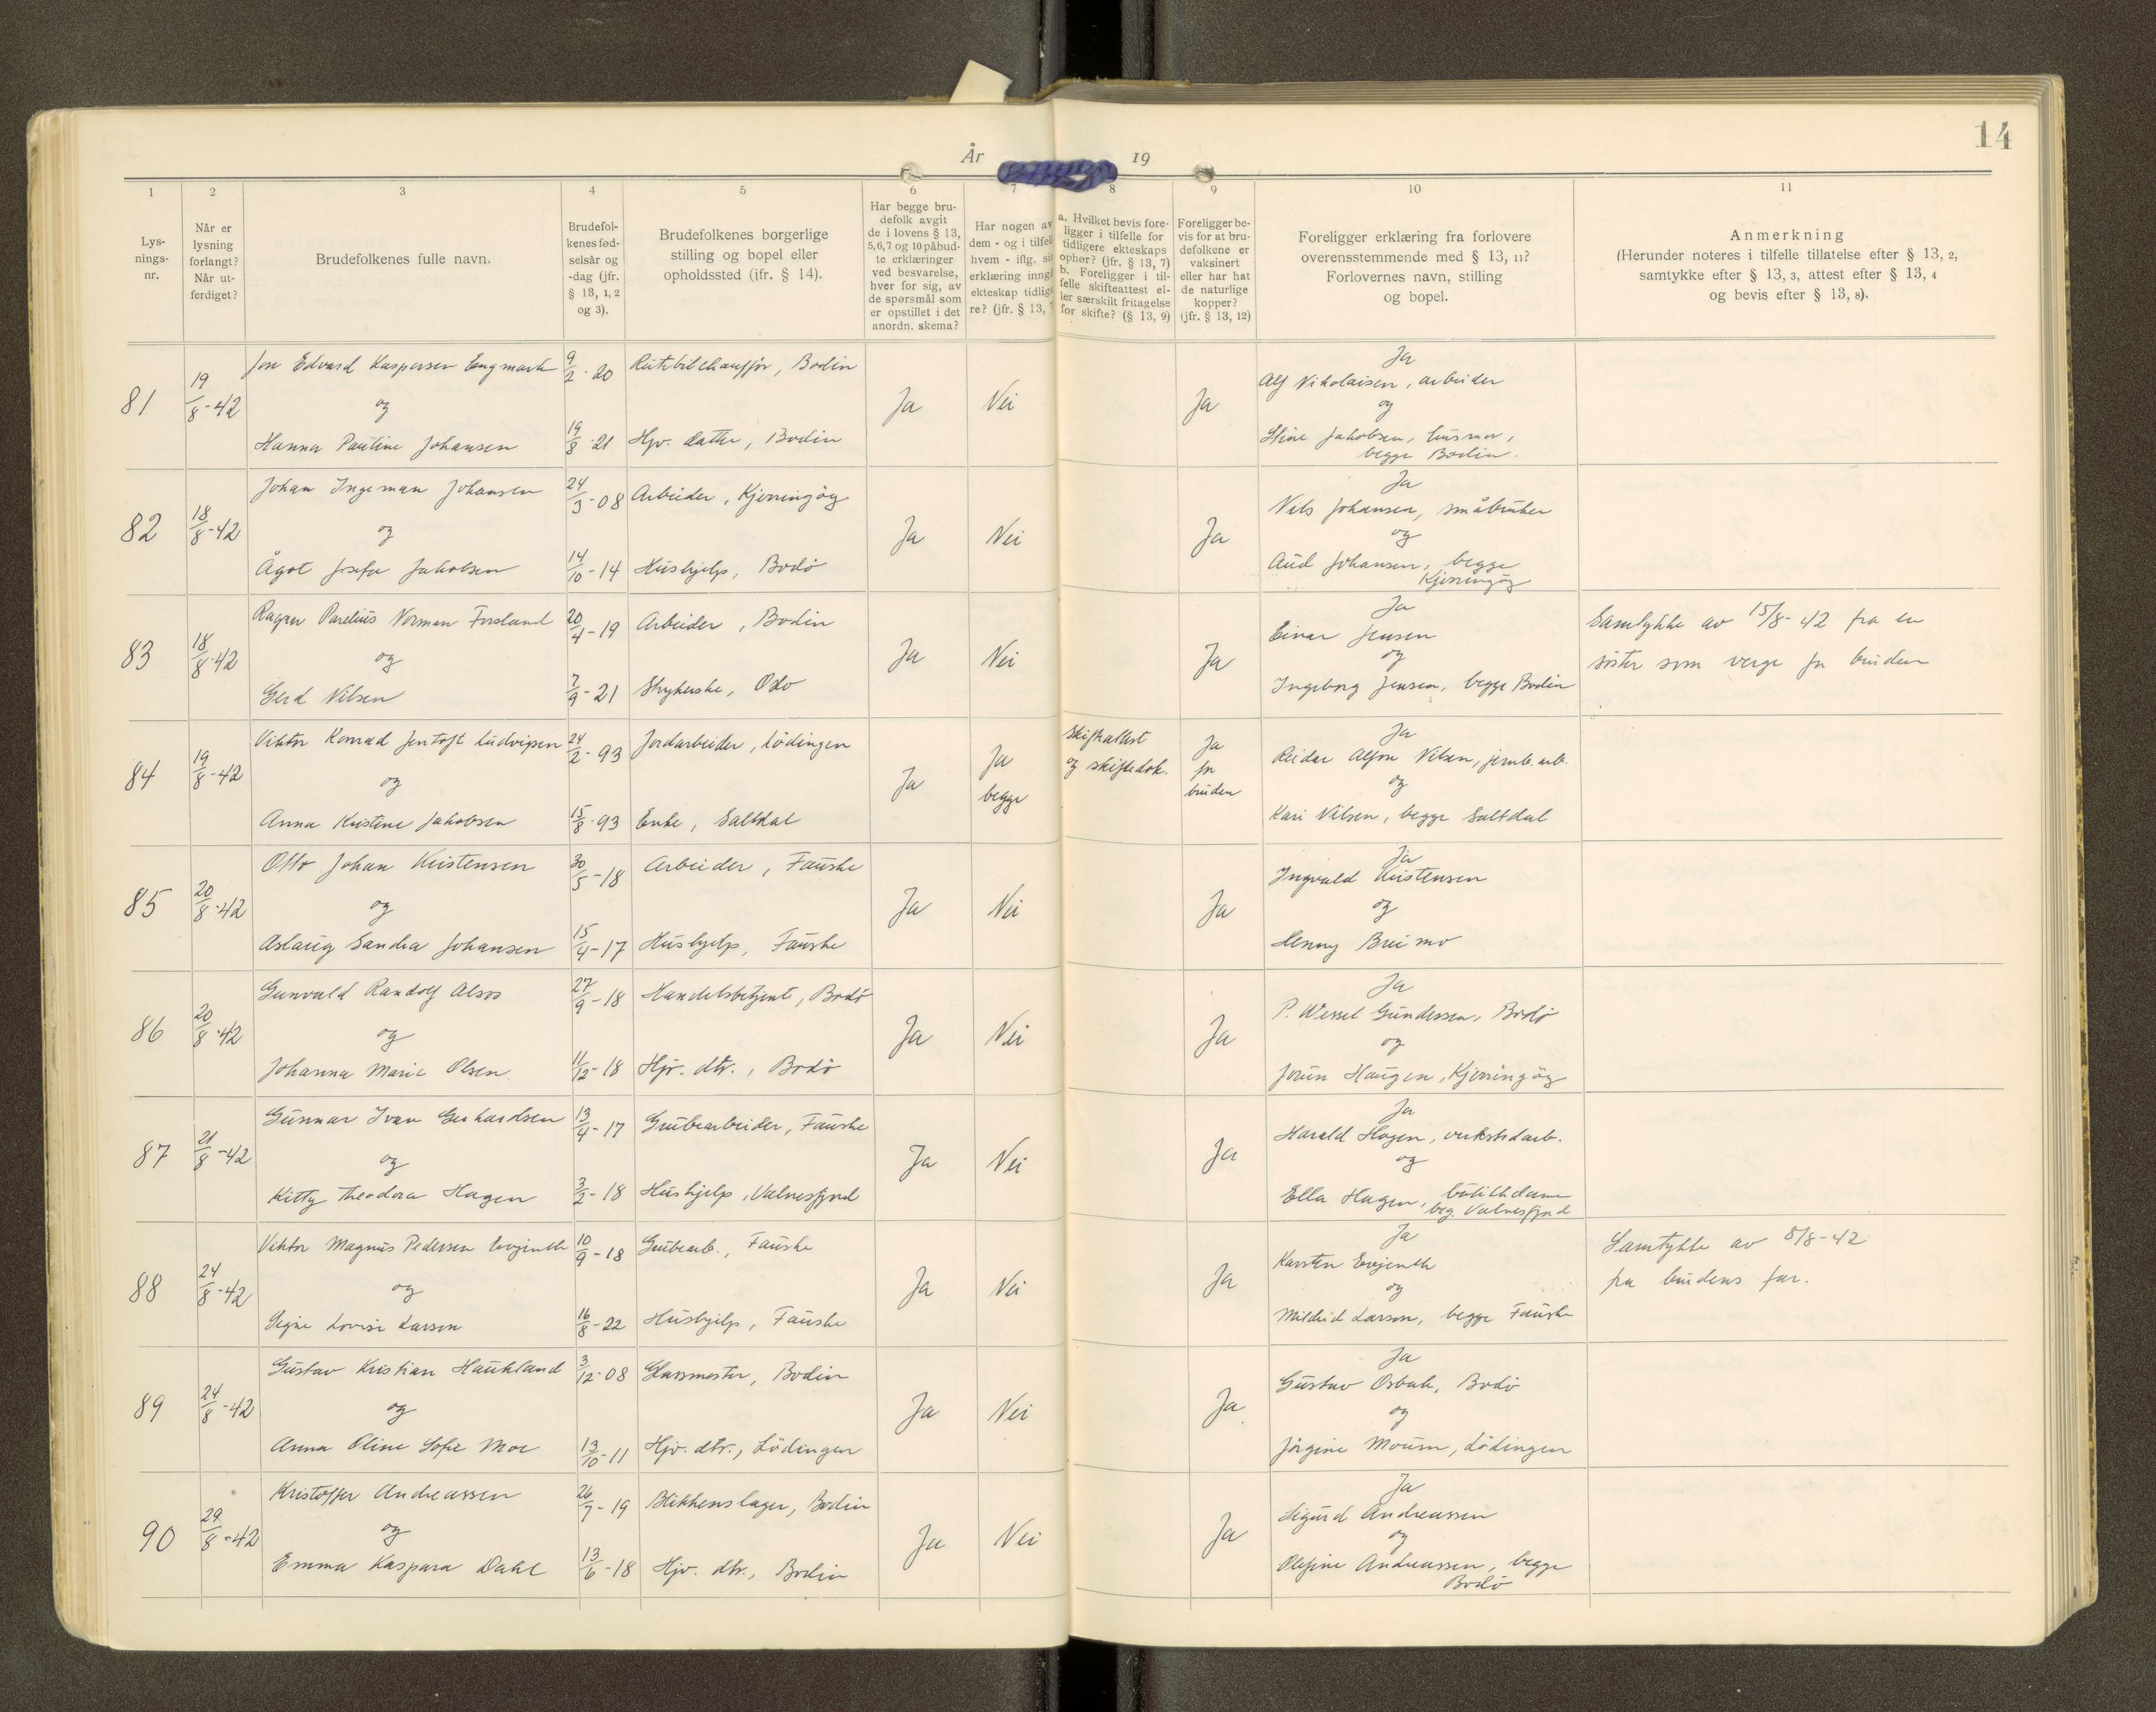 14
År 19
1 2 3 4 5 6 7 8 9 10 11
Lys-
nings-
nr.
Når er
lysning
forlangt?
Når ut-
ferdiget?
Brudefolkenes fulle navn.
Brudefol-
kenes fød-
selsår og
-dag (jfr.
§ 13, 1, 2
og 3).
Brudefolkenes borgerlige
stilling og bopel eller
opholdssted (jfr. § 14).
Har begge bru-
defolk avgit
de i lovens § 13,
5, 6, 7 og 10 påbud-
te erklæringer
ved besvarelse,
hver for sig, av
de spørsmål som
er opstillet i det
anordn. skema?
Har nogen av
dem - og i tilfel
hvem - iflg. si
erklæring inngå
ekteskap tidlig
re? (jfr. § 13,
a. Hvilket bevis fore-
ligger i tilfelle for
tidligere ekteskaps
opher? (jfr. § 13, 7)
b. Foreligger i til-
felle skifteattest el-
ler særskilt fritagelse
for skifte? (§ 13, 9)
Foreligger be-
vis for at bru-
defolkene er
vaksinert
eller har hat
de naturlige
kopper?
(jfr. § 13, 12)
Foreligger erklæring fra forlovere
overensstemmende med § 13, 11?
Forlovernes navn, stilling
og bopel.
Anmerkning
(Herunder noteres i tilfelle tillatelse efter § 13, 2,
samtykke efter § 13, 3, attest efter § 13, 4
og bevis efter § 13, 8).
81 19/8-42 Edvard Kaspersen Engmark 9/2-20 Rutebilchauffør, Bodin Ja Nei Ja
og
Hanna Pauline Johansen 19/8-21 Hjv. datter, Bodin
Ja
Alf Nikolaisen, arbeider
og
Stine Jakobsen, husmor,
begge Bodin.
82 18/8-42 Johan Ingeman Johansen 24/3-08 Arbeider, Kjerringöy Ja Nei Ja
og
Ågot Josefa Jakobsen 14/10-14 Hushjelp, Bodö
Ja
Nils Johansen, småbruker
og
Aud Johansen, begge
Kjerringöy
83 18/8-42 Ragnar Parelius Norman Forsland 20/4-19 Arbeider, Bodin Ja Nei Ja
og
Gerd Nilsen 7/9-21 Strykerske, Oslo
Ja
Einar Jensen
og
Ingeborg Jensen, begge Bodin
Samtykke av 15/8-42 fra en
söster som verge for bruden
84 19/8-42 Viktor Konrad Jentoft Ludvigsen 24/2-93 Jordarbeider, Lödingen Ja
og
Anna Kristine Jakobsen 15/8-93 Enke, Saltdal
Ja
begge
Skifteattest
og skiftedok.
Ja
for
bruden
Ja
Reidar Alfon Nilsen, jernb. arb.
og
Kari Nilsen, begge Saltdal
85 20/8-42 Otto Johan Kristensen 30/5-18 Arbeider, Fauske Ja Nei Ja
og
Aslaug Sandra Johansen 15/4-17 Hushjelp, Fauske
Ja
Ingvald Kristensen
og
Henny Breimo
86 20/8-42 Gunvald Randolf Alsos 27/9-18 Handelsbetjent, Bodö Ja Nei Ja
og
Johanna Marie Olsen 11/12-18 Hjv. dtr., Bodö
Ja
P. Wessel Gundersen, Bodö
og
Jorun Haugen, Kjerringöy
87 21/8-42 Gunnar Ivan Gerhardsen 13/4-17 Grubearbeider, Fauske Ja Nei Ja
og
Kitty Theodora Hagen 3/2-18 Hushjelp, Valnesfjord
Ja
Harald Hagen, verkstedarb.
og
Ella Hagen, butikkdame
beg. Valnesfjord
88 24/8-42 Viktor Magnus Pedersen Evjenth 10/9-18 Grubearb., Fauske Ja Nei Ja
og
Signe Lovise Larsen 16/8-22 Hushjelp, Fauske
Ja
Karsten Evjenth
og
Mildrid Larsen, begge Fauske
Samtykke av 8/8-42
fra brudens far.
89 24/8-42 Gustav Kristian Haukland 3/12-08 Glassmester, Bodin Ja Nei Ja
og
Anna Oline Sofie Moe 13/10-11 Hjv. dtr., Lödingen
Ja
Gustav Osbak, Bodö
og
Jörgine Mourn, Lödingen
90 29/8-42 Kristoffer Andreassen 26/7-19 Blikkenslager, Bodin Ja Nei Ja
og
Emma Kaspara Dahl 13/6-18 Hjv. dtr., Bodin
Ja
Sigurd Andreassen
og
Olefine Andreassen, begge
Bodö